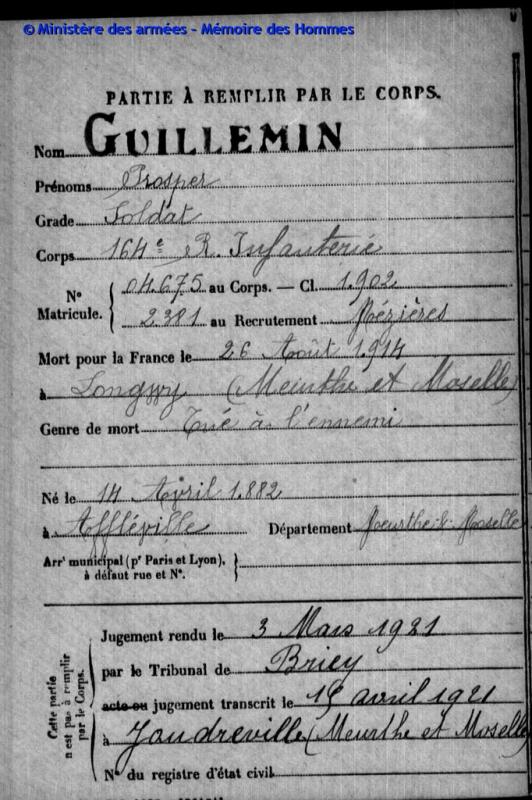 © Ministère des armées - Mémoire des Hommes
PARTIE À REMPLIR PAR LE CORPS.
Nom GUILLEMIN
Prénoms Prosper
Grade Soldat
Corps 164e R. Infanterie
N° Matricule. { 04.675 au Corps. — Cl. 1.902
2381 au Recrutement Mézières
Mort pour la France le 26 Août 1.914
à Longwy (Meurthe et Moselle)
Genre de mort Tué à l'ennemi
Né le 14 Avril 1.882
à Affléville Département Meurthe et Moselle
Arrt municipal (pr Paris et Lyon), }
à défaut rue et N°.
Cette partie n'est pas à remplir par le Corps.
Jugement rendu le 3 Mars 1921
par le Tribunal de Briey
acte ou jugement transcrit le avril 1921
à Jandreville (Meurthe et Moselle)
N° du registre d'état civil